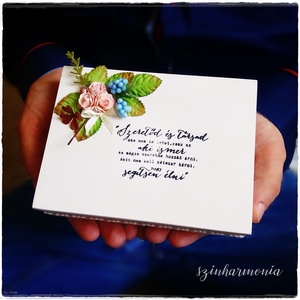 "Szeretőd és társad
más nem is lehet, csak az
aki ismer
és mégis szeretne hozzád érni.
Akit nem kell kétszer kérni,
hogy
segítsen élni"
szinharmonia